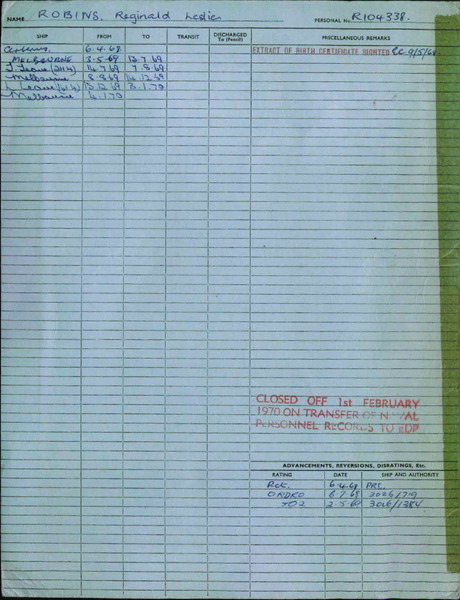 NAME ROBINS. Reginald Leslie PERSONAL No. R104338.
SHIP FROM TO TRANSIT DISCHARGED To (Pencil) MISCELLANEOUS REMARKS
Cerberus. 6.4.68 EXTRACT OF BIRTH CERTIFICATE SIGHTED 9/5/68
MELBOURNE 3.5.69 13.7.69
Leave (214) 14.7.69 7.8.69
Melbourne 8.8.69 14.12.69
Leave 15.12.69 3.1.70
Melbourne 4.1.70
CLOSED OFF 1st FEBRUARY
1970 ON TRANSFER OF NAVAL
PERSONNEL RECORDS TO EDP
ADVANCEMENTS, REVERSIONS, DISRATINGS, Etc.
RATING DATE SHIP AND AUTHORITY
Rct. 6.4.68
ORDRO 6.7.68 2026/719
2.5.69 3026/1384